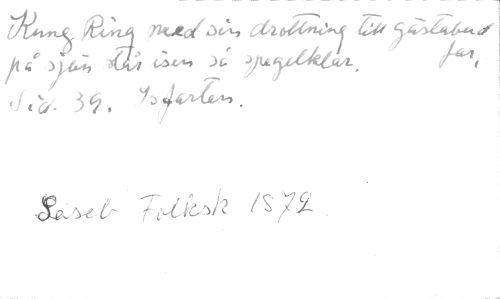 Kung Ring med sin drottning till gästabud
far,
på sjön står isen så spegelklar.
Sid. 39. Isfarten.
Läseb Folksk 1872